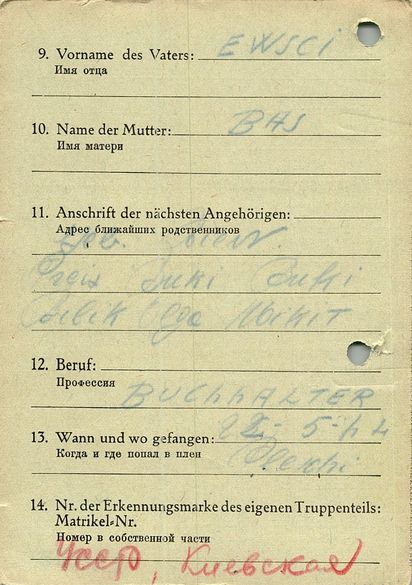 9. Vorname des Vaters: EWSEI
Имя отца
10. Name der Mutter: BAS
Имя матери
11. Anschrift der nächsten Angehörigen:
Адрес ближайших родственников
Geb. Kiew.
Buki Buki
12. Beruf:
Профессия
BUCHHALTER
13. Wann und wo gefangen:
Когда и где попал в плен
14. Nr. der Erkennungsmarke des eigenen Truppenteils:
Matrikel-Nr.
Номер в собственной части
Усср, Киевская